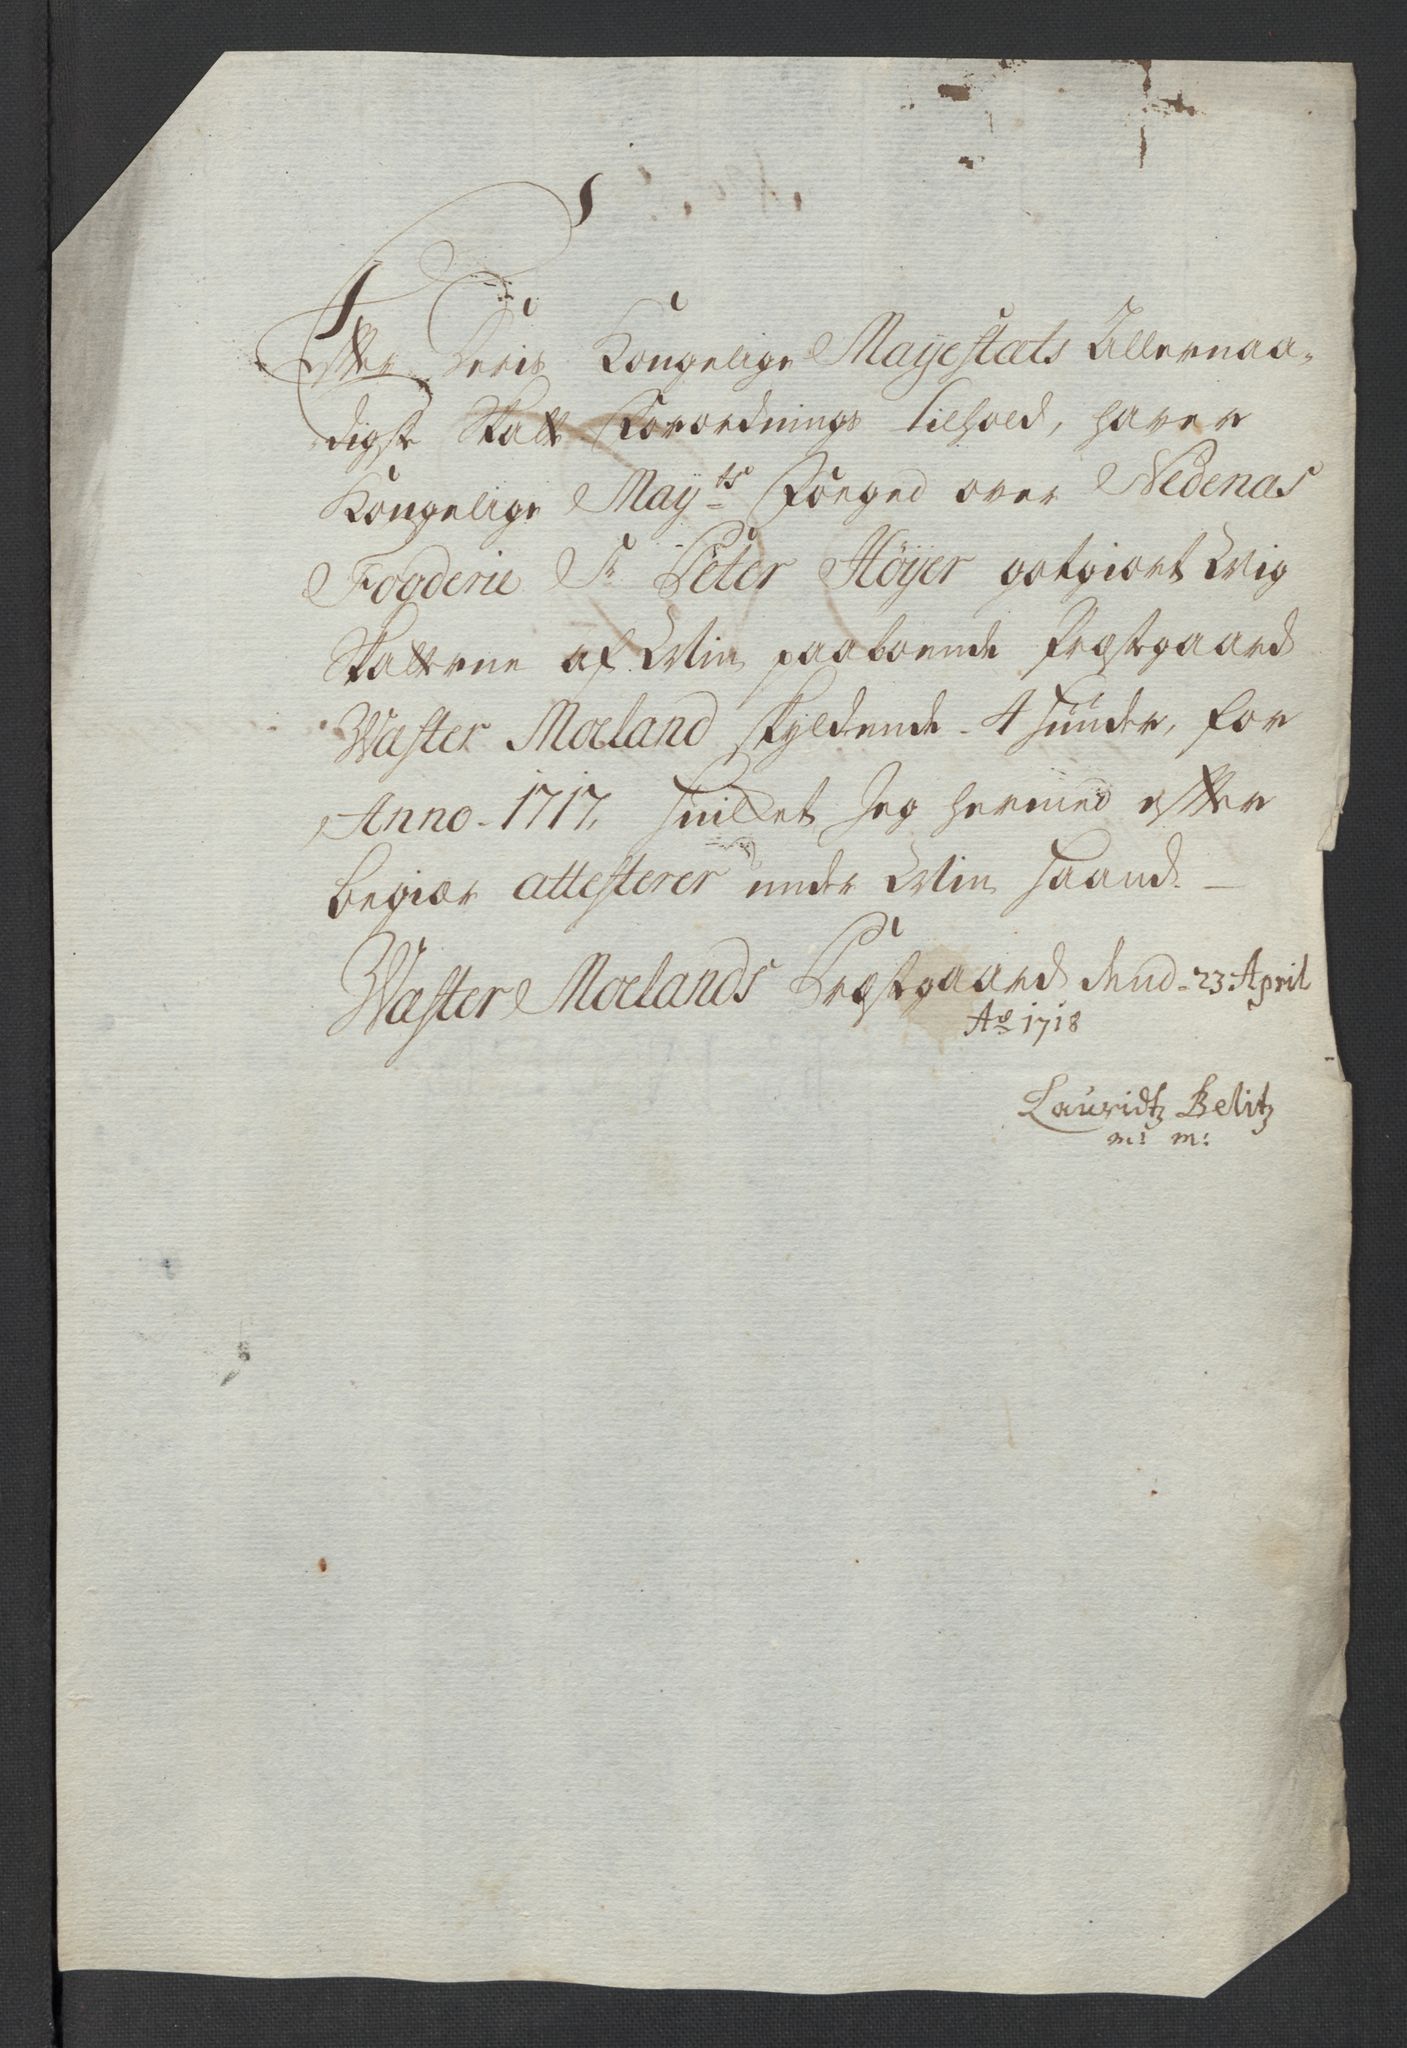 Efter Deris Kongelige Mayestæts Allernaa-
digste Skatt Forordnings tilhold, haver
Kongelige Mayts Foeged over Nedenæs
Fogderie Sr Peter Höyer gotgiort Mig
Skatterne af Min paaboende Præstgaard
Wæster Moeland skyldende 4 hünder, for
Anno 1717, huilket Jeg hermed efter
begiær attesterer under Min haand
Wæster Moelands Præstgaard dend 23 April
Ao 1718
Lauridtz Belitz
m: m: